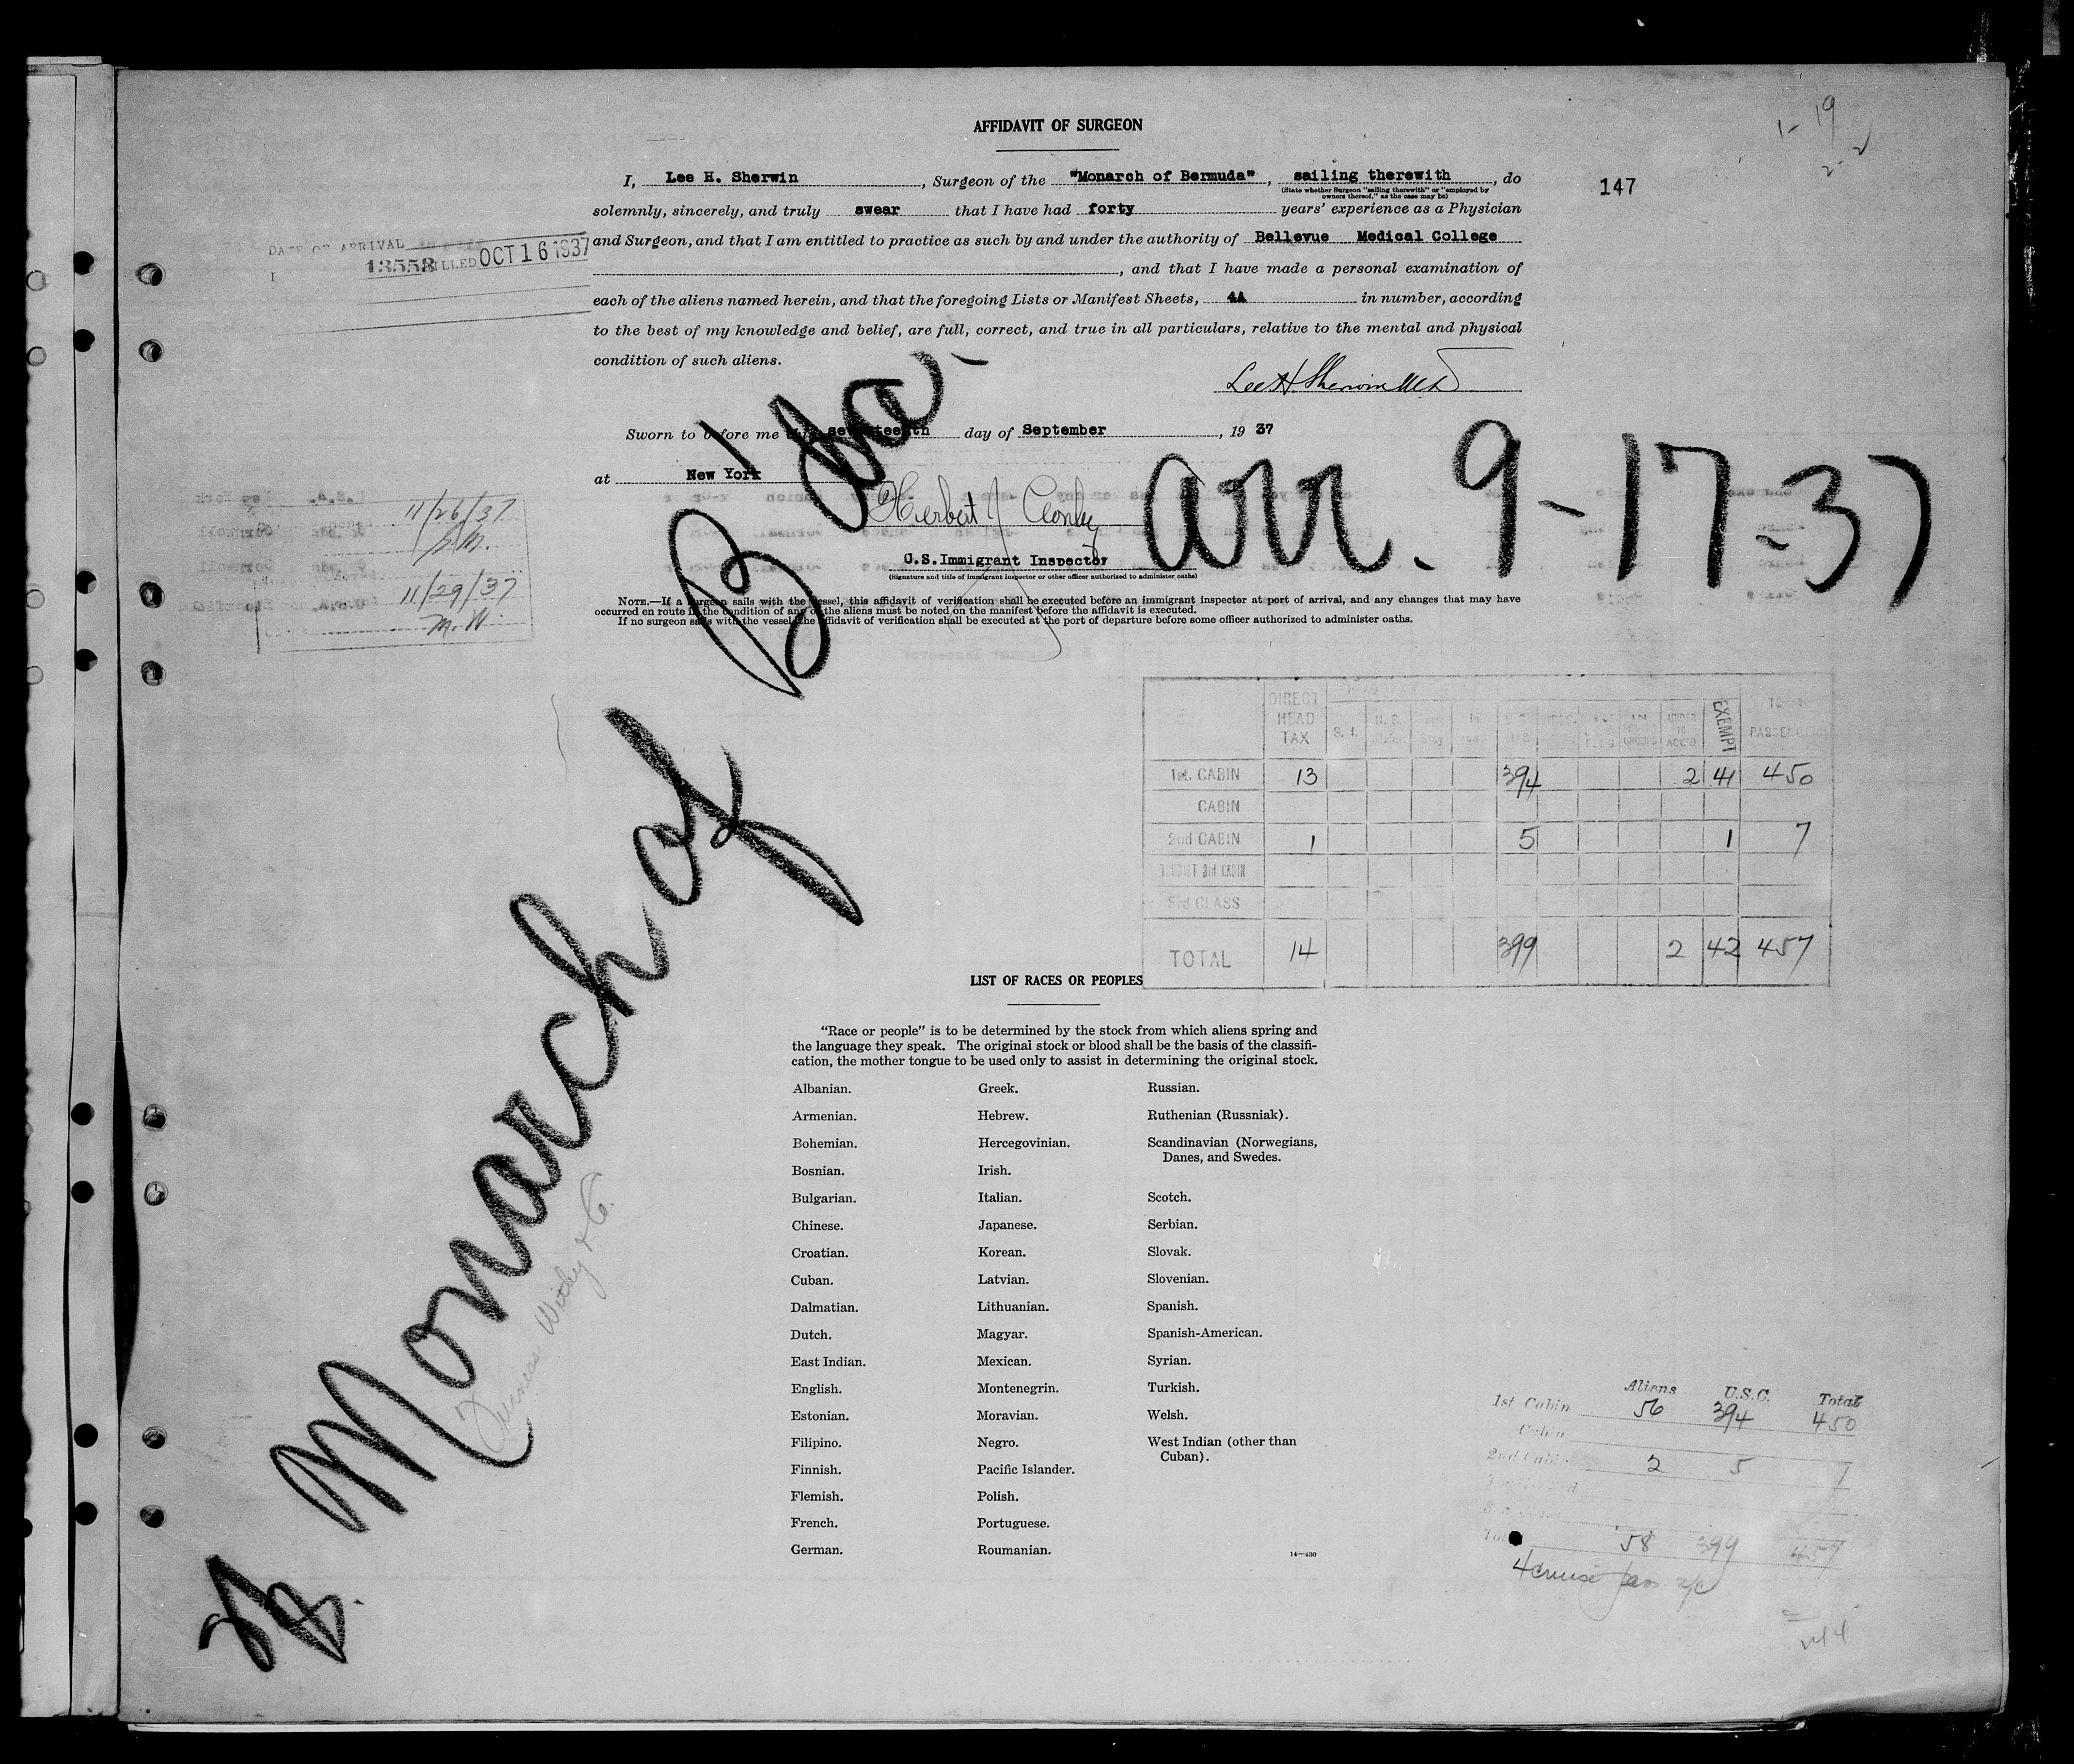 AFFIDAVIT OF SURGEON
1-19
2-2
147
I, Lee H. Sherwin, Surgeon of the "Monarch of Bermuda", sailing therewith, do
(State whether Surgeon "sailing therewith" or "employed by
owners thereof," as the case may be)
solemnly, sincerely, and truly swear that I have had forty years' experience as a Physician
and Surgeon, and that I am entitled to practice as such by and under the authority of Bellevue Medical College
, and that I have made a personal examination of
each of the aliens named herein, and that the foregoing Lists or Manifest Sheets, 4A in number, according
to the best of my knowledge and belief, are full, correct, and true in all particulars, relative to the mental and physical
condition of such aliens.
DATE OF ARRIVAL
13558 BILLED OCT 16 1937
Lee H Sherwin MD
Sworn to before me this seventeenth day of September, 19 37
at New York
Herbert J
U.S. Immigrant Inspector
(Signature and title of immigrant inspector or other officer authorized to administer oaths)
NOTE.—If a surgeon sails with the vessel, this affidavit of verification shall be executed before an immigrant inspector at port of arrival, and any changes that may have
occurred en route in the condition of any of the aliens must be noted on the manifest before the affidavit is executed.
If no surgeon sails with the vessel, the affidavit of verification shall be executed at the port of departure before some officer authorized to administer oaths.
arr. 9-17-37
11/26/37
11/29/37
M.W.
Monarch of B'da.
Furness Withy & Co.
DIRECT HEAD TAX S. I. U. S. EXEMPT TOTAL PASSENGERS
UNDER 16 ACC'D
1st. CABIN 13 394 2 41 450
CABIN
2nd CABIN 1 5 1 7
TOURIST 3rd CABIN
3rd CLASS
TOTAL 14 399 2 42 457
LIST OF RACES OR PEOPLES
"Race or people" is to be determined by the stock from which aliens spring and
the language they speak. The original stock or blood shall be the basis of the classifi-
cation, the mother tongue to be used only to assist in determining the original stock.
Albanian.
Armenian.
Bohemian.
Bosnian.
Bulgarian.
Chinese.
Croatian.
Cuban.
Dalmatian.
Dutch.
East Indian.
English.
Estonian.
Filipino.
Finnish.
Flemish.
French.
German.
Greek.
Hebrew.
Hercegovinian.
Irish.
Italian.
Japanese.
Korean.
Latvian.
Lithuanian.
Magyar.
Mexican.
Montenegrin.
Moravian.
Negro.
Pacific Islander.
Polish.
Portuguese.
Roumanian.
Russian.
Ruthenian (Russniak).
Scandinavian (Norwegians,
Danes, and Swedes.
Scotch.
Serbian.
Slovak.
Slovenian.
Spanish.
Spanish-American.
Syrian.
Turkish.
Welsh.
West Indian (other than
Cuban).
14—430
Aliens U.S.C. Total
1st Cabin 56 394 450
Cabin
2nd Cabin 2 5 7
58 399 457
4 cruise pass